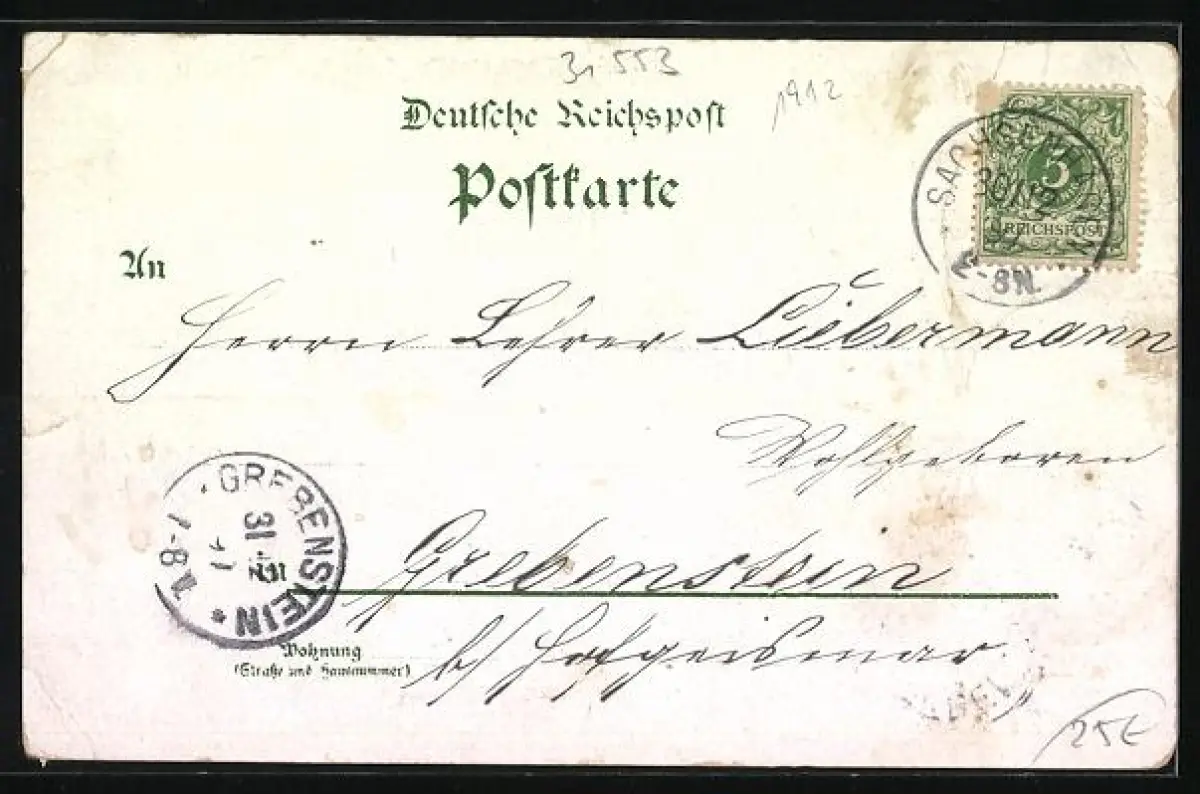 31 553
1912
Deutſche Reichspoſt
Poſtkarte
An
SACHSENHAUSEN
30/12
REICHSPOST
3
-8N.
Herrn Lehrer Liebermann
Wohlgeboren
GREBENSTEIN
31
12
7-8
Grebenstein
b/ Hofgeismar.
Wohnung
(Straße und Hausnummer)
25€